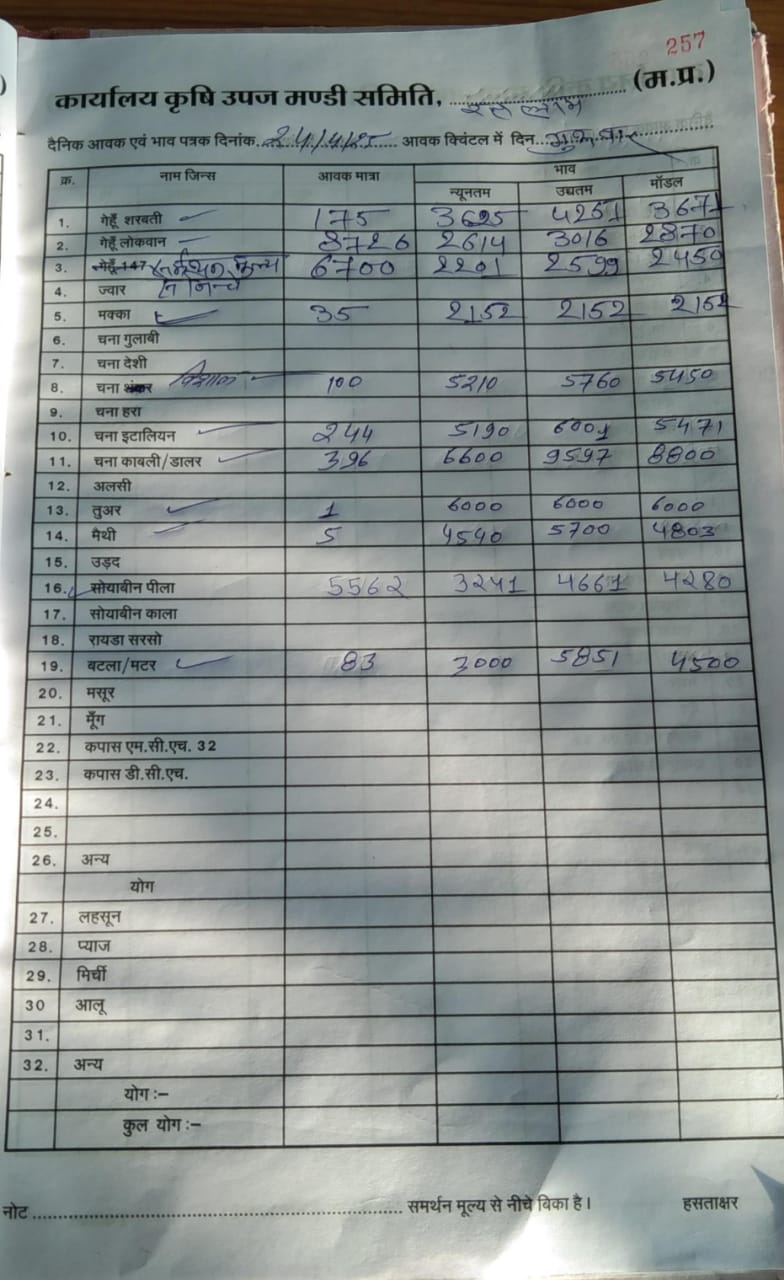 257
कार्यालय कृषि उपज मण्डी समिति, रतलाम (म.प्र.)
दैनिक आवक एवं भाव पत्रक दिनांक 24/4/25 आवक क्विंटल में दिन गुरूवार
क्र. नाम जिन्स आवक मात्रा भाव
न्यूनतम उच्चतम मॉडल
1. गेहूँ शरबती 175 3625 4251 3671
2. गेहूँ लोकवान 8726 2614 3016 2870
3. गेहूँ 147 6700 2201 2599 2450
4. ज्वार
5. मक्का 35 2152 2152 2152
6. चना गुलाबी
7. चना देशी
8. चना विशाल 100 5210 5760 5450
9. चना हरा
10. चना इटालियन 244 5190 6001 5471
11. चना काबली/डालर 396 6600 9597 8800
12. अलसी
13. तुअर 1 6000 6000 6000
14. मैथी 5 4540 5700 4803
15. उड़द
16. सोयाबीन पीला 5562 3241 4661 4280
17. सोयाबीन काला
18. रायडा सरसो
19. बटला/मटर 83 3000 5851 4500
20. मसूर
21. मूँग
22. कपास एम.सी.एच. 32
23. कपास डी.सी.एच.
24.
25.
26. अन्य
योग
27. लहसून
28. प्याज
29. मिर्ची
30 आलू
31.
32. अन्य
योग :-
कुल योग :-
नोट ........ समर्थन मूल्य से नीचे बिका है। हसताक्षर